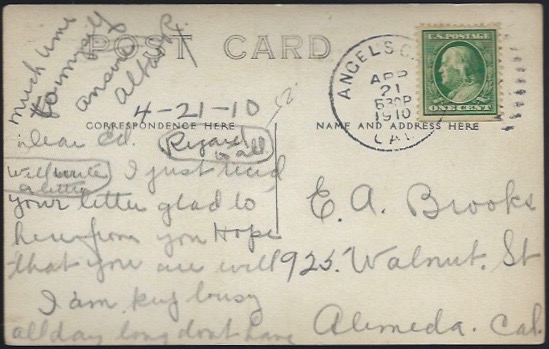 POST CARD
much time
to myself
answer
Alta R.
4-21-10
CORRESPONDENCE HERE
Dear Ed.
Regard
to all
Will write
a letter
I just recd
your letter glad to
hear from you Hope
that you are well
I am kep busy
all day long dont have
ANGELS C
APR
21
630P
1910
CAL
U.S. POSTAGE
ONE CENT
NAME AND ADDRESS HERE
E. A. Brooks
925. Walnut. St
Alemeda. Cal.